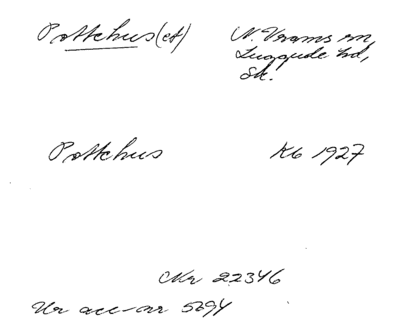 Pottehus (et)
N. Vrams sn,
Luggude hd,
Sk.
Pottehus
Kb 1927
Nr 22346
Ur acc-nr 5694